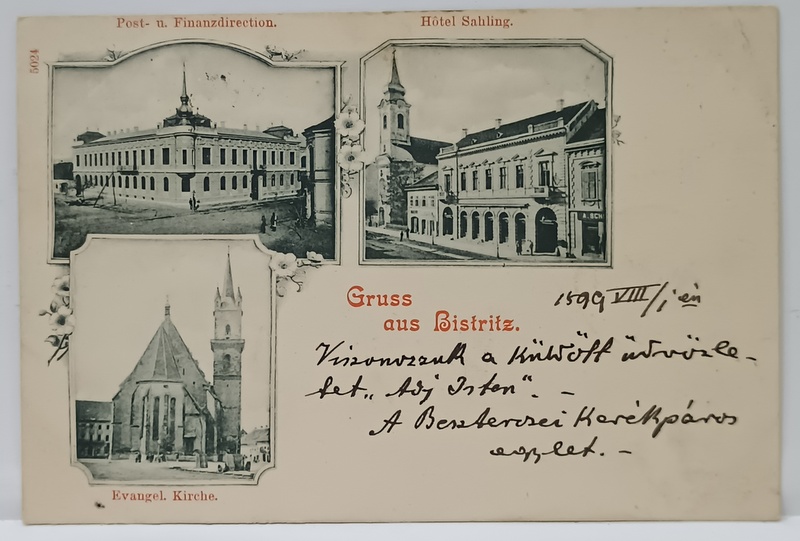 Post- u. Finanzdirection.
Hôtel Sahling.
5024
A. SCH
Gruss
aus Bistritz.
1899 VIII/j én
Viszonozzuk a küldött üdvözle-
tet „Adj Isten". –
A Beszterczei Kerékpáros
egylet. –
Evangel. Kirche.